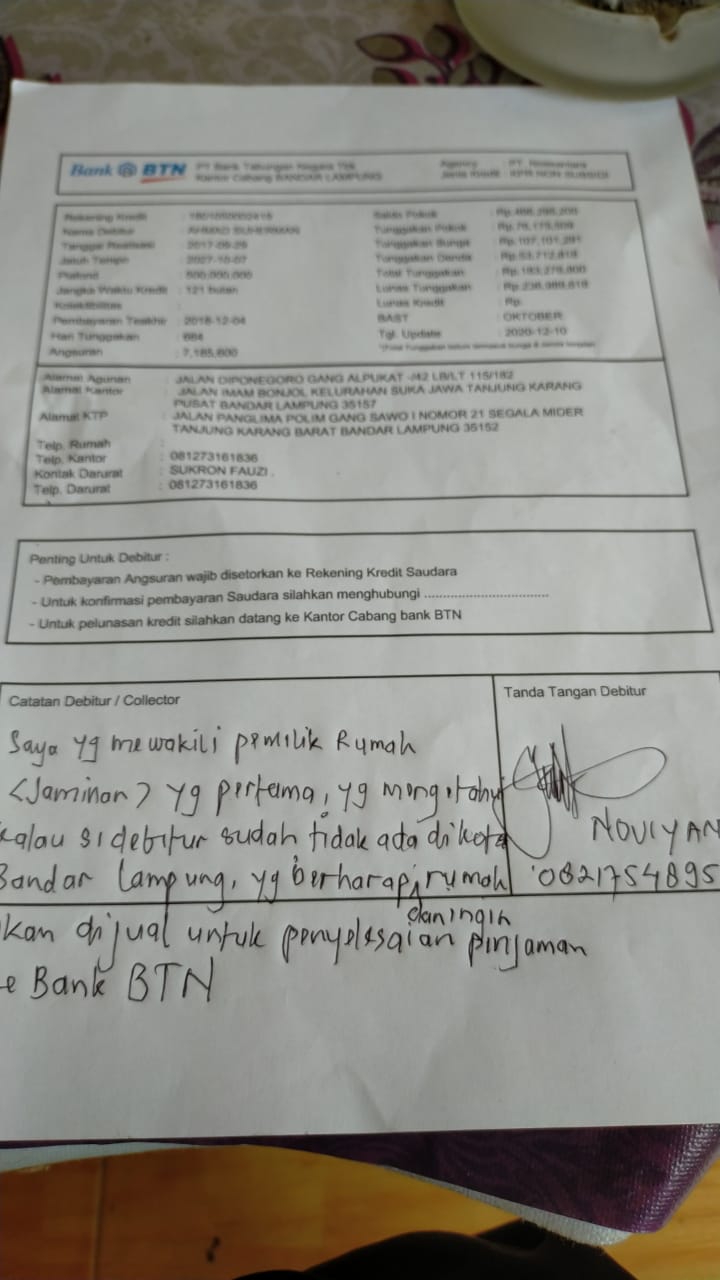 Bank BTN PT Bank Tabungan Negara Tbk
Kantor Cabang BANDAR LAMPUNG
Rekening Kredit :
Nama Debitur : AHMAD SUHERMAN
Tanggal Realisasi : 2017-09-29
Jatuh Tempo : 2027-10-07
Plafond : 500,000,000
Jangka Waktu Kredit : 121 bulan
Kolektibilitas :
Pembayaran Terakhir : 2018-12-04
Hari Tunggakan : 684
Angsuran : 7,185,600
Saldo Pokok
Tunggakan Pokok
Tunggakan Bunga : Rp.107,101,291
Tunggakan Denda : Rp.53,712,818
Total Tunggakan
Lunas Tunggakan
Lunas Kredit : Rp.
BAST : OKTOBER
Tgl. Update : 2020-12-10
Alamat Agunan : JALAN DIPONEGORO GANG ALPUKAT -/42 LB/LT 115/182
Alamat Kantor : JALAN IMAM BONJOL KELURAHAN SUKA JAWA TANJUNG KARANG
PUSAT BANDAR LAMPUNG 35157
Alamat KTP : JALAN PANGLIMA POLIM GANG SAWO I NOMOR 21 SEGALA MIDER
TANJUNG KARANG BARAT BANDAR LAMPUNG 35152
Telp. Rumah :
Telp. Kantor : 081273161836
Kontak Darurat : SUKRON FAUZI .
Telp. Darurat : 081273161836
Penting Untuk Debitur :
- Pembayaran Angsuran wajib disetorkan ke Rekening Kredit Saudara
- Untuk konfirmasi pembayaran Saudara silahkan menghubungi ...............................
- Untuk pelunasan kredit silahkan datang ke Kantor Cabang bank BTN
Catatan Debitur / Collector
Saya yg mewakili pemilik Rumah
<Jaminan> yg pertama, yg mengetahui
kalau si debitur sudah tidak ada di kota
Bandar Lampung, yg berharap, rumah
dan ingin
kan dijual untuk penyelesaian pinjaman
e Bank BTN
Tanda Tangan Debitur
NOVIYAN
0821754895